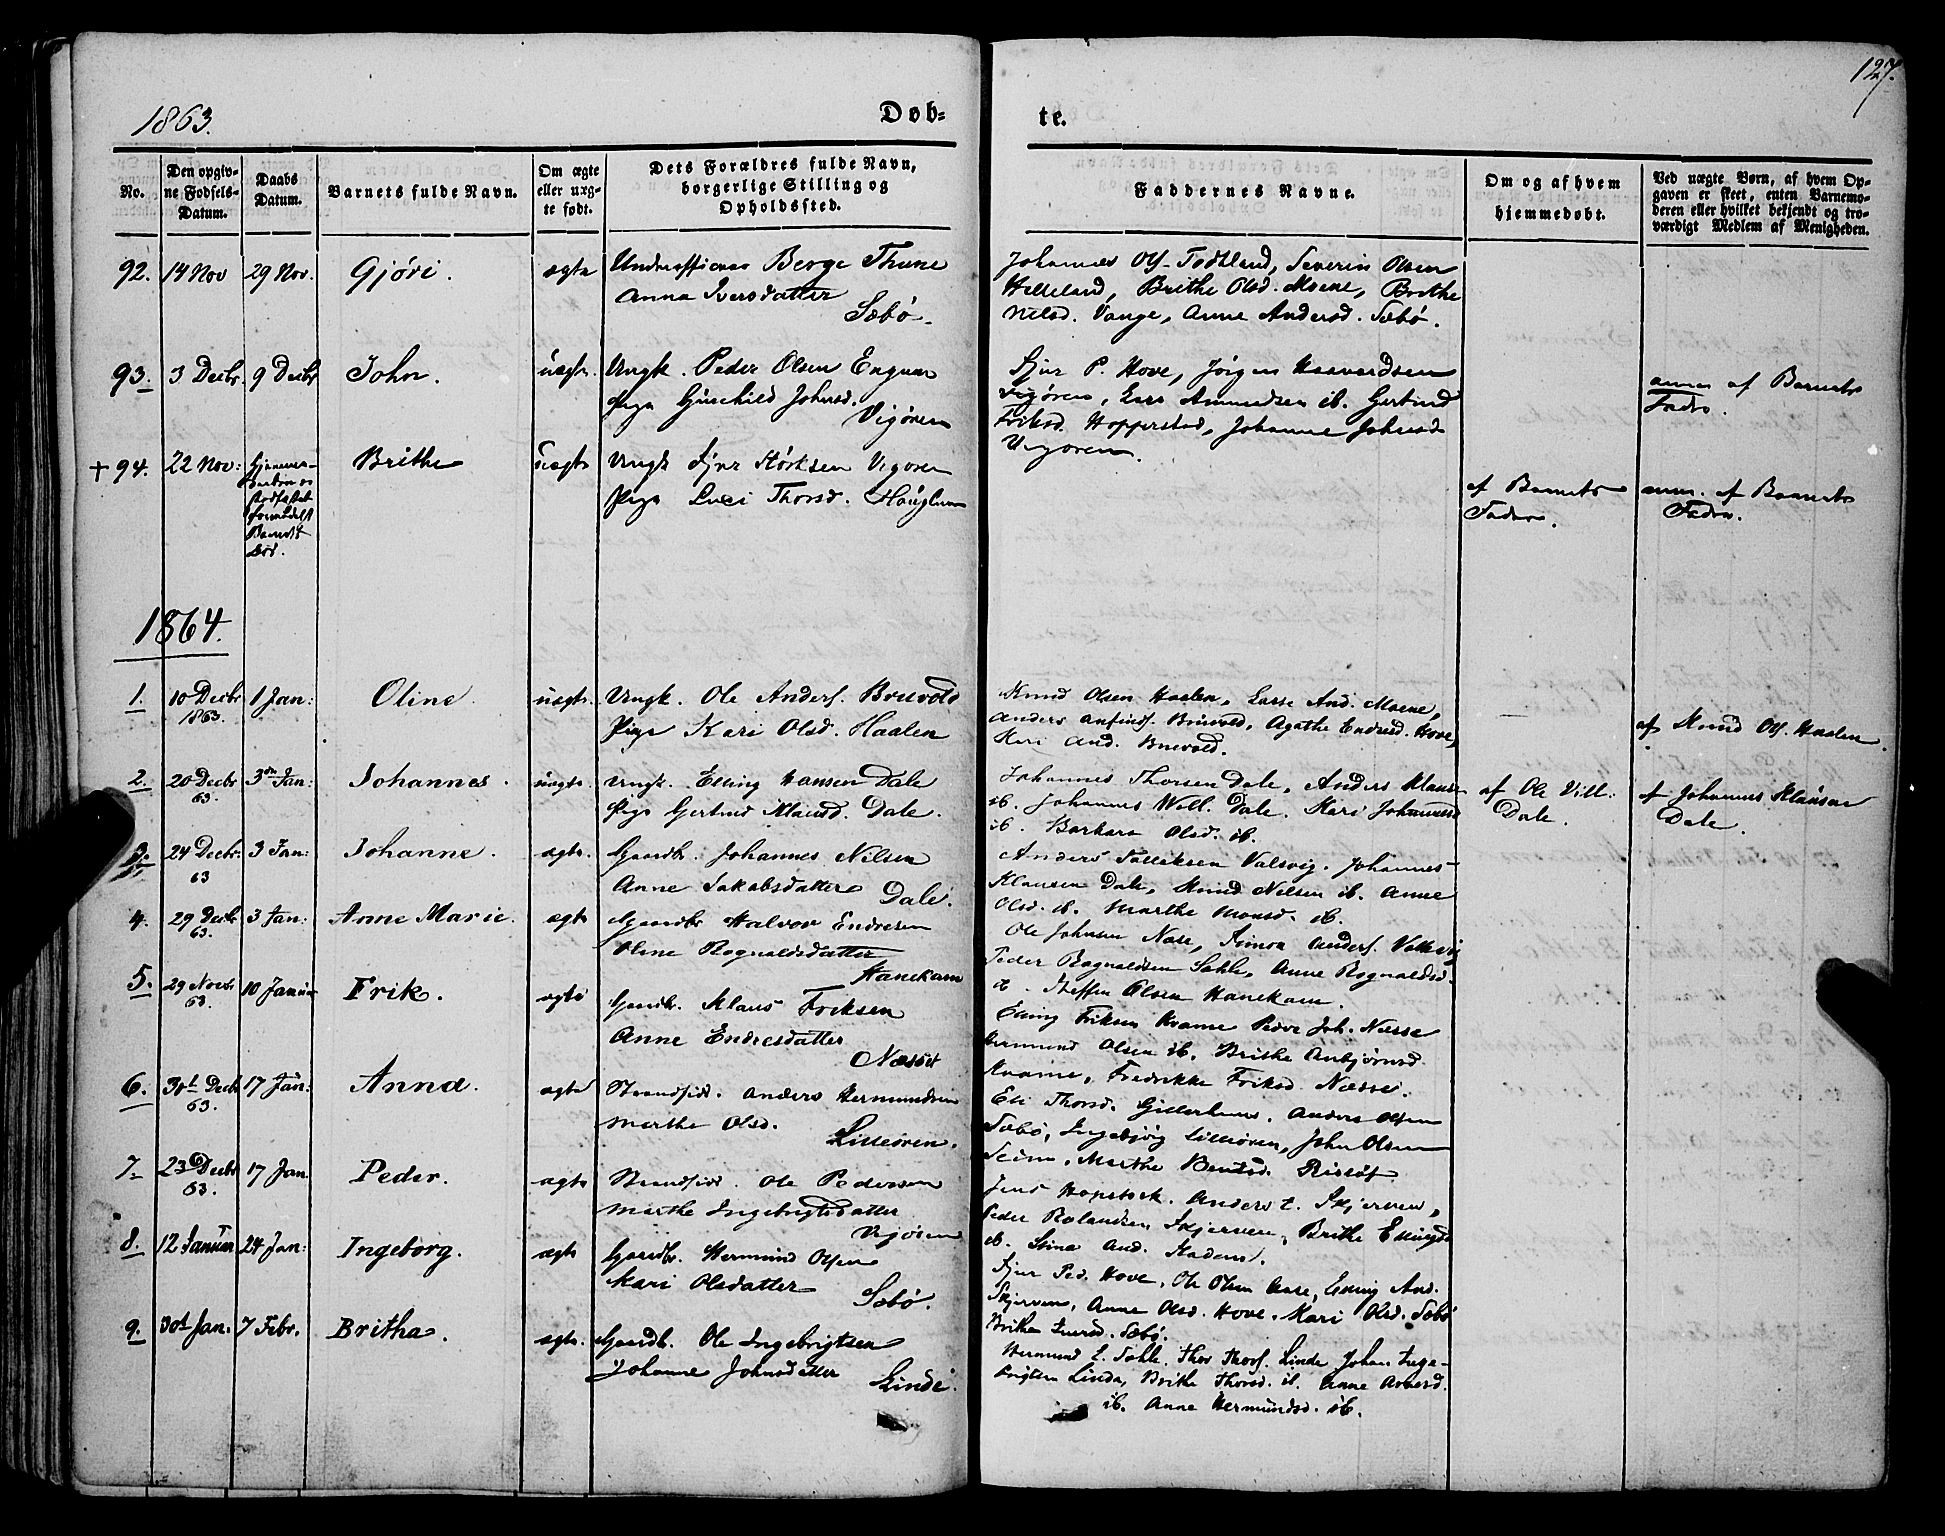 127.
1863.
Døb-
te.
No.
Den opgivne Fødsels-Datum.
Daabs Datum.
Barnets fulde Navn.
Om ægte eller uægte født.
Dets Forældres fulde Navn, borgerlige Stilling og Opholdssted.
Faddernes Navne.
Om og af hvem hjemmedøbt.
Ved uægte Børn, af hvem Opgaven er skeet, enten Barnemoderen eller hvilket bekjendt og troværdigt Medlem af Menigheden.
92. 14 Nov 29 Nov. Gjøri. ægte Underofficeer Berge Thune
Anna Iversdatter
Sæbø.
Johannes Ols. Todtland, Severin Olsen
Helleland, Brithe Olsd. Moene, Brithe
Nilsd. Vange, Anne Andersd. Sæbø.
93. 3 Decbr. 9 Decbr John. uægte. Ungk. Peder Olsen Engum
Pige Gunhild Johnsd.
Vigøren
Sjur P. Hove, Jørgen Haavardsen
Vigøren, Lars Amundsen ib. Gertrud
Eriksd. Hopperstad, Johanne Johnsd
Vigøren.
anm. af Barnets
Fader.
+ 94. 22 Nov: Brithe uægte Ungk Sjur Størksen Vigøren
Pige Luci Thorsd. Hauglum
Barnet
død.
af Barnets
Fader.
anm. af Barnets
Fader.
1864.
1. 10 Decbr 1863. 1 Jan: Oline uægte. Ungk. Ole Anders. Bruvold
Pige Kari Olsd. Haalen
Knud Olsen Haalen, Lasse And. Moene,
Anders Anfinds. Bruvold, Agathe Endresd. Hove,
Kari And. Bruvold.
af Knud Ols. Haalen.
2. 20 Decbr 63 3die Jan: Johannes. uægte. Ungk. Elling Hansen Dale
Pige Gertrud Monsd. Dale.
Johannes Thorsen Dale, Anders Klaus.
ib. Johannes Will. Dale. Kari Johannesd
ib. Barbara Olsd. ib.
af Ole Vill.
Dale.
af Johannes Klausen
Dale.
3. 24 Decbr: 63 3 Jan: Johanne. ægte. Gaardbr. Johannes Nilsen
Anne Jakobsdatter
Dale.
Anders Tolleksen Valsvig. Johannes
Klausen Dale, Knud Nilsen ib. Anne
Olsd. ib. Marthe Monsd. ib.
4. 29 Decbr 63. 3 Jan: Anne Marie. ægte Gaardbr Halvor Endresen
Oline Rognaldsdatter
Hanekam
Ole Johnsen Nese, Simon Anders. Valsvig
Peder Rognaldsen Sahle, Anne Rognaldsd.
ib. Steffen Olsen Hanekam.
5. 29 Novbr 63. 10 Januar Erik. ægte Gaardbr. Klaus Eriksen
Anne Endresdatter
Næsset
Elling Eriksen Kvamme Peder Joh. Næsse
Hermund Olsen ib. Brithe Anbjørnsd
Kvamme, Fredrikke Eriksd. Næsse.
6. 30te Decbr 63. 17 Jan: Anna. ægte Strandsid. Anders Hermundsen
Marthe Olsd.
Lilleøren.
Eli Thorsd. Anders Olsen
Sæbø, Ingebjørg Lilleøren, John Olsen
Marthe Bentsd.
7. 23 Decbr 63. 17 Jan Peder. ægte Strandsid. Ole Pedersen
Marthe Ingebrigtsdatter
Vigøren
Jens Hopstock. Anders E. Skjerven,
Peder Rolandsen Skjerven, Brithe Ellingsd
ib. Stina And. Stadem.
8. 12 Januar 24 Jan: Ingeborg. ægte Gaardbr. Hermund Olsen
Kari Olsdatter
Sæbø.
Sjur Ped. Hove, Ole Olsen Aase, Elling And.
Skjerven, Anne Olsd. Hove, Kari Olsd. Sæbø
Brithe Iversd. Sæbø.
9. 30te Jan. 7 Febr. Britha. ægte. Gaardb. Ole Ingebrigtsen
Johanne Johnsdatter
Linde.
Hermund E. Sahle. Thor Thors. Linde Johan Inge-
brigtsen Linde, Brithe Thorsd. ib. Anne
ib. Anne Hermundsd. ib.